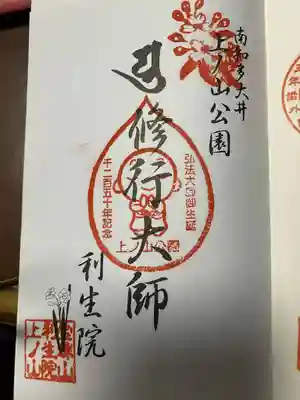 南知多大井
上ノ山公園
修行大師
弘法大師御生誕
千二百五十年記念
上ノ山公園
利生院
利生院
上ノ山